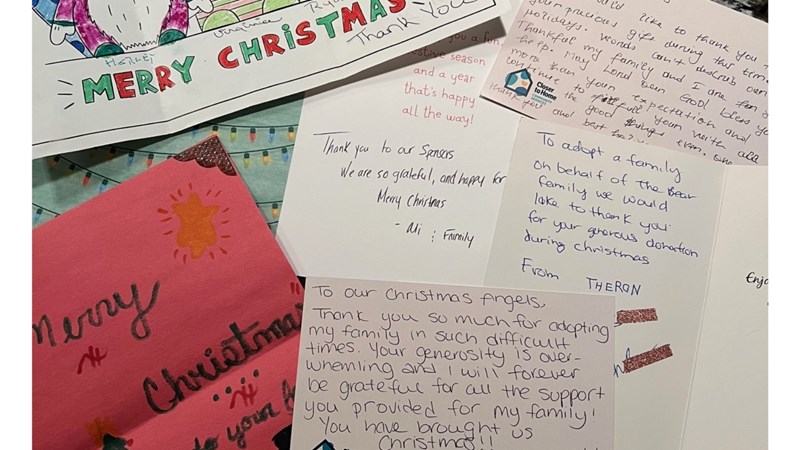 Harlej
Virginia
MERRY CHRISTMAS
Thank You
you a fun
festive season
and a year
that's happy
all the way!
Thank you to our Sponsors
We are so grateful, and happy for
Merry Christmas
- Ali & Family
like to thank you
your precious gifts during this time
holidays. Words can't describe own
Thankful my family and I are for
help. May Lord
God bless you
more than your expectation and
continue to
your with all
the good things
Thank you and best
Closer
to Home
To adopt a family
on behalf of the Bear
family we would
like to thank you
for your generous donation
during christmas
From THERON
Enjo
Merry
Christmas
to your
To our Christmas Angels,
Thank you so much for adopting
my family in such difficult
times. Your generosity is over-
whelming and I will forever
be grateful for all the support
you provided for my family!
You have brought us
Christmas!!